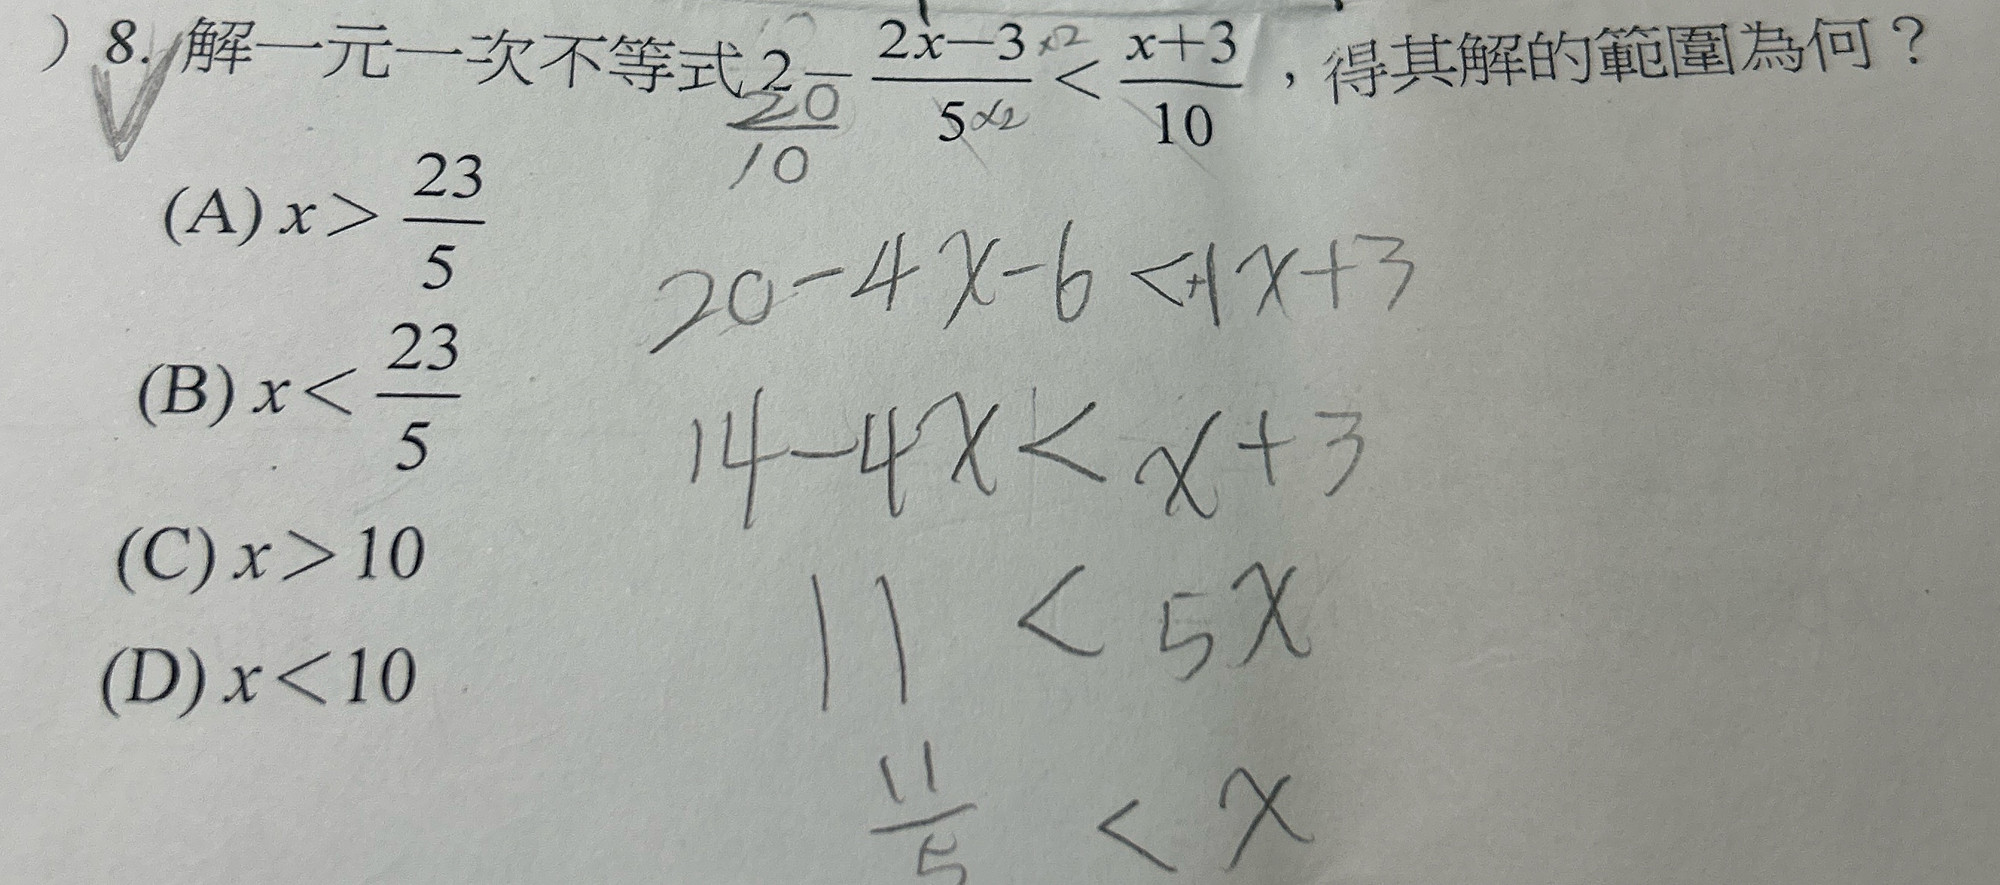 ) 8. 解一元一次不等式 2 - \frac{2x-3}{5} < \frac{x+3}{10} ，得其解的範圍為何？
×2
×2
\frac{20}{10}
(A) x > \frac{23}{5}
(B) x < \frac{23}{5}
(C) x > 10
(D) x < 10
20-4x-6<+1x+3
14-4x<x+3
11 < 5x
\frac{11}{5} < x